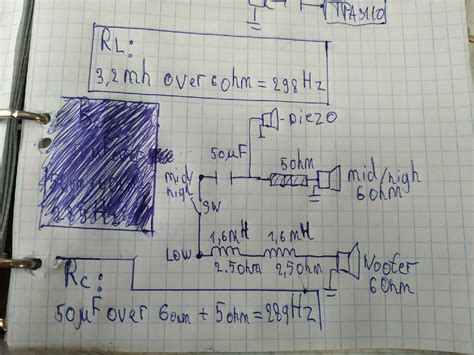 TPA3110
RL:
3,2mh over 6ohm = 298Hz
piezo
50µF
5ohm
mid/high
6ohm
mid/
high
SW
1,6mH 1,6mH
LOW
2.5ohm 2,5ohm
Woofer
6ohm
Rc:
50µF over 6ohm + 5ohm = 289Hz